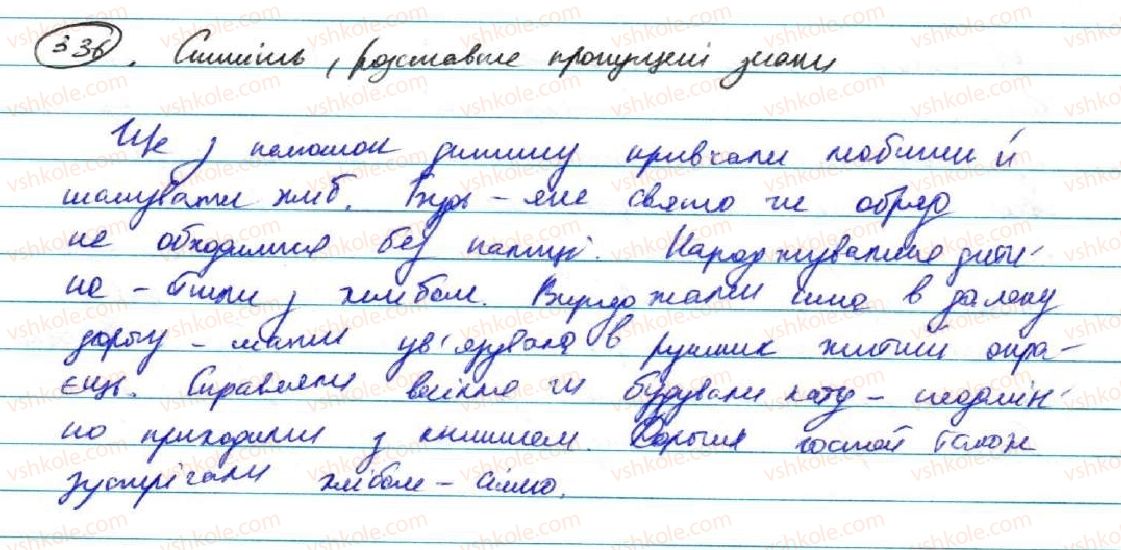 336. Спишіть, розставте пропущені знаки
Ще з пелюшок дитину привчали любити й
шанувати хліб. Будь-яке свято чи обряд
не обходилися без паляниці. Народжувалася дити-
на – йшли з хлібом. Виряджали сина в далеку
дорогу – мати ув'язувала в рушник житній окра-
єць. Справляли весілля чи будували хату – неодмін-
но приходили з книшем. Дорогих гостей також
зустрічали хлібом-сіллю.